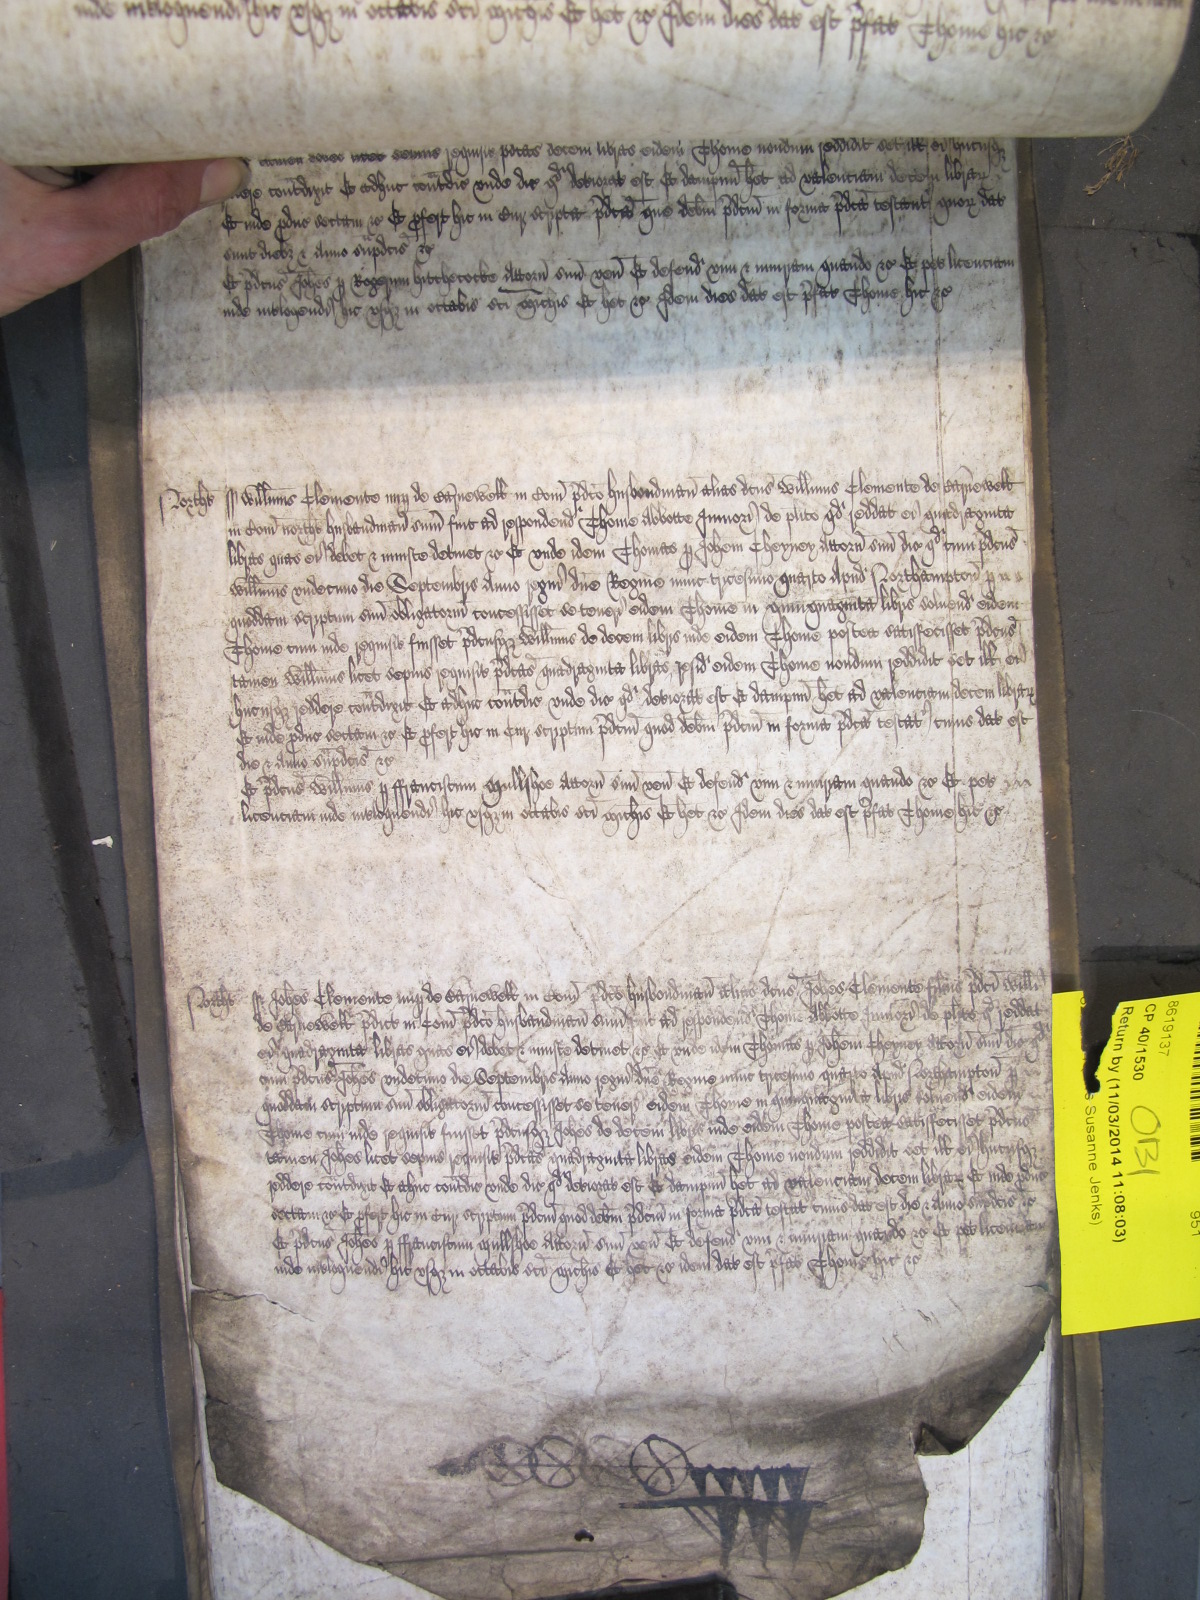 inde interloquendi hic usqz in octabis sci Michis Et het &c Idem dies dat est p̄fat Thome hic &c
tamen licet sepius requisit p̄dcas decem libras eidem Thome nondum reddidit set ill ei hucusqz
reddere contradixit Et adhuc contradic unde dic qd deteriorat est Et dampnu het ad valenciam decem librar
Et inde produc sectam &c Et profert hic in Cur scripta p̄dca que debm p̄dcm in forma p̄dca testant quor dat
sunt diebz & anno sup̄dcis &c
Et p̄dcus Johes p Rogerum Hitchecocke Attorn suu ven Et defend vim & iniuriam quando &c Et pet licenciam
inde interloquendi hic usqz in octabis sci Michis Et het &c Idem dies dat est p̄fat Thome hic &c
Northt ss Willmus Clemente nup de in Com p̄dco husbondman alias dcus Willmus Clemente de
in Com Northt husbandman sum fuit ad respondend Thome Abbotte Juniori de plito qd reddat ei quadraginta
libras quas ei debet & iniuste detinet &c Et unde idem Thomas p Johem Cheyney Attorn suu dic qd cum p̄dcus
Willmus undecimo die Septembris Anno regni dne Regine nunc tricesimo quarto Apud Northampton p
quoddam scriptum suu obligatoriu concessisset se teneri eidem Thome in quinquaginta libris solvend eidem
Thome cum inde requisit fuisset p̄dcusqz Willmus de decem libris inde eidem Thome postea satisfecisset p̄dcus
tamen Willmus licet sepius requisit p̄dcas quadraginta libras resid eidem Thome nondum reddidit set ill ei
hucusqz reddere contradixit Et adhuc contradic unde dic qd deteriorat est Et dampnu het ad valenciam decem librar
Et inde produc sectam &c Et profert hic in Cur scriptum p̄dcm quod debm p̄dcm in forma p̄dca testat cuius dat est
die & Anno sup̄dcis &c
Et p̄dcus Willmus p Franciscum Mullshoe Attorn suu ven Et defend vim & iniuriam quando &c Et pet
licenciam inde interloquendi hic usqz in octabis sci Michis Et het &c Idem dies dat est p̄fat Thome hic &c
Northt ss Johes Clemente nup de in Com p̄dco husbondman alias dcus Johes Clemente filius p̄dci Willi
de p̄dict in Com p̄dco husbandman sum fuit ad respondend Thome Abbotte Juniori de plito qd reddat
ei quadraginta libras quas ei debet & iniuste detinet &c Et unde idem Thomas p Johem Cheyney Attorn suu dic qd
cum p̄dcus Johes undecimo die Septembris Anno regni dne Regine nunc tricesimo quarto Apud Northampton p
quoddam scriptum suu obligatoriu concessisset se teneri eidem Thome in quinquaginta libris solvend eidem
Thome cum inde requisit fuisset p̄dcusqz Johes de decem libris inde eidem Thome postea satisfecisset p̄dcus
tamen Johes licet sepius requisit p̄dcas quadraginta libras eidem Thome nondum reddidit set ill ei hucusqz
reddere contradixit Et adhuc contradic unde dic qd deteriorat est Et dampnu het ad valenciam decem librar Et inde produc
sectam &c Et profert hic in Cur scriptum p̄dcm quod debm p̄dcm in forma p̄dca testat cuius dat est die & Anno sup̄dcis &c
Et p̄dcus Johes p Franciscum Mullshoe Attorn suu ven Et defend vim & iniuriam quando &c Et pet licenciam
inde interloquendi hic usqz in octabis sci Michis Et het &c idem dat est p̄fat Thome hic &c
8619137
CP 40/1530
Return by (11/03/2014 11:08:03)
Susanne Jenks)
951